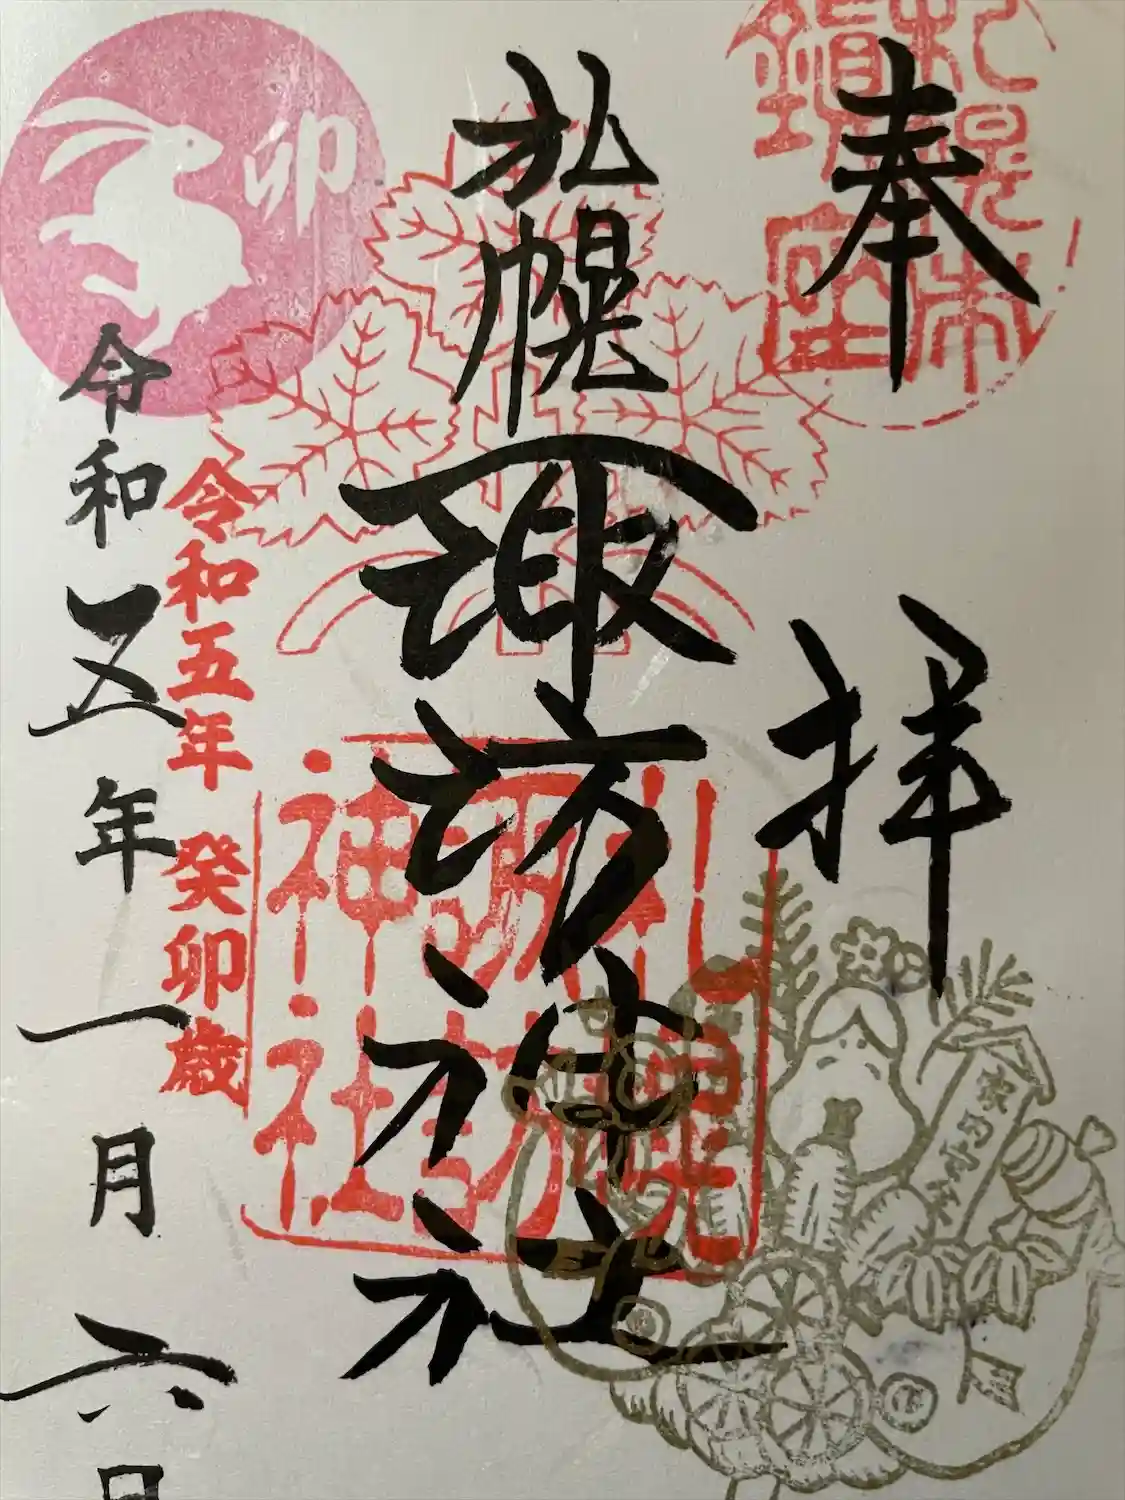 奉拝
札幌諏訪神社
札幌
諏訪
神社
令和五年 癸卯歳
令和五年一月六日
卯